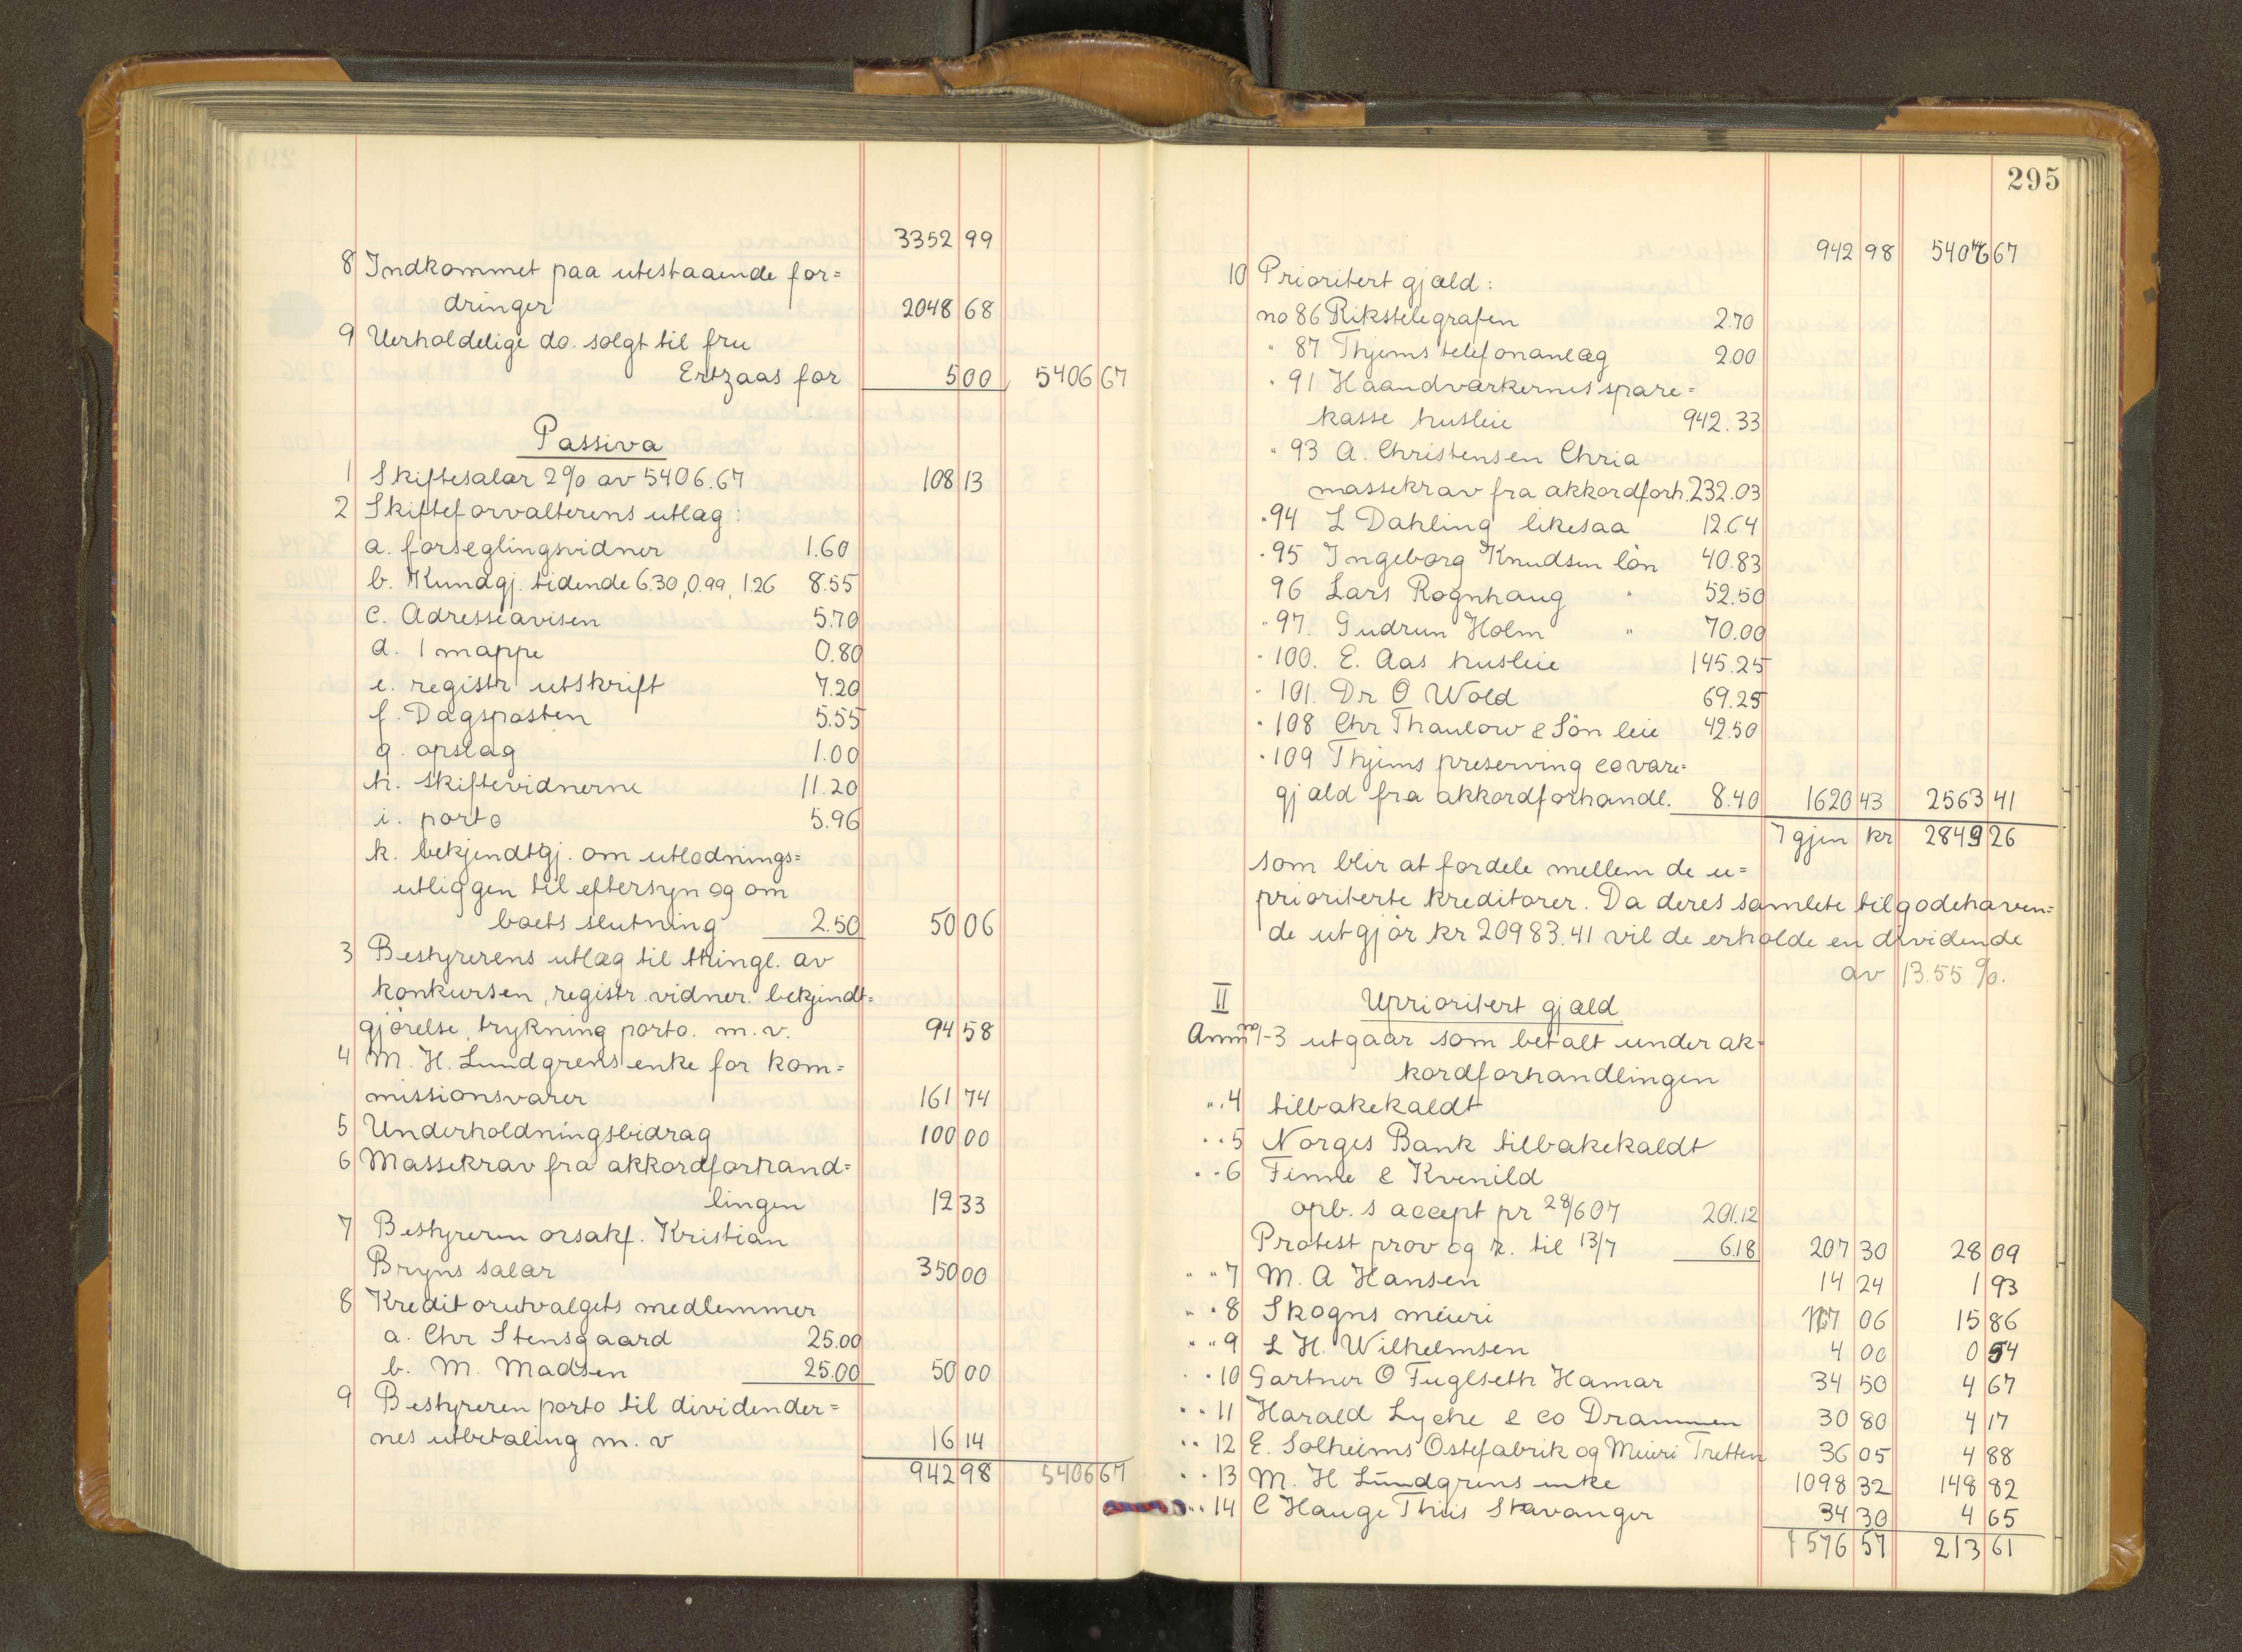 3352 99
8 Indkommet paa utestaaende for=
dringer 2048 68
9 Uerholdelige do. solgt til fru
Ertzaas for 5 00 5406 67
Passiva
1 Skiftesalær 2% av 5406.67 108 13
2 Skifteforvalterens utlæg:
a. forseglingsvidner 1.60
b. Kundgj. tidende 6.30, 0.99, 1.26 8.55
c. Adresseavisen 5.70
d. 1 mappe 0.80
e. registr utskrift 7.20
f. Dagsposten 5.55
g. opslag 1.00
h. skiftevidnerne 11.20
i. porto 5.96
k. bekjendtgj. om utlodnings=
utliggen til eftersyn og om
boets slutning 2.50 50 06
3 Bestyrerens utlæg til thingl. av
konkursen, registr. vidner. bekjendt=
gjørelse, trykning porto. m. v. 94 58
4 M. H. Lundgrens enke for kom=
missionsvarer 161 74
5 Underholdningsbidrag 100 00
6 Massekrav fra akkordforhand=
lingen 12 33
7 Bestyreren orsakf. Kristian
Bryns salær 350 00
8 Kreditorutvalgets medlemmer
a. Chr Stensgaard 25.00
b. M. Madsen 25.00 50 00
9 Bestyreren porto til dividender=
nes utbetaling m. v 16 14
942 98 5406 67
295
942 98 5406 67
10 Prioritert gjæld:
no 86 Rikstelegrafen 2.70
" 87 Thjems telefonanlæg 2.00
" 91 Haandværkernes spare=
kasse husleie 942.33
" 93 A. Christensen Chria
massekrav fra akkordforh. 232.03
" 94 L Dahling likesaa 12.64
" 95 Ingeborg Knudsen løn 40.83
96 Lars Rognhaug " 52.50
" 97. Gudrun Holm " 70.00
" 100. E. Aas husleie 145.25
" 101. Dr O Wold 69.25
" 108 Chr Thaulow & Søn leie 42.50
" 109 Thjems preserving co vare=
gjæld fra akkordforhandl. 8.40 1620 43 2563 41
Igjen kr 2849 26
som blir at fordele mellem de u=
prioriterte kreditorer. Da deres samlete tilgodehaven=
de utgjør kr 20983.41 vil de erholde en dividende
av 13.55 %.
II Uprioritert gjæld
Anm no 1-3 utgaar som betalt under ak=
kordforhandlingen
" " 4 tilbakekaldt
" " 5 Norges Bank tilbakekaldt
" " 6 Finne & Kvenild
opb. s accept pr 28/6 07 201.12
Protest prov og r. til 13/7 6.18 207 30 28 09
" " 7 M. A Hansen 14 24 1 93
" " 8 Skogns meieri 117 06 15 86
" " 9 L H. Wilhelmsen 4 00 0 54
" " 10 Gartner O Fuglseth Hamar 34 50 4 67
" " 11 Harald Lyche & co Drammen 30 80 4 17
" " 12 E. Solheims Ostefabrik og Meieri Tretten 36 05 4 88
" " 13 M. H Lundgrens enke 1098 32 148 82
" " 14 C Hauge Thiis Stavanger 34 30 4 65
1576 57 213 61